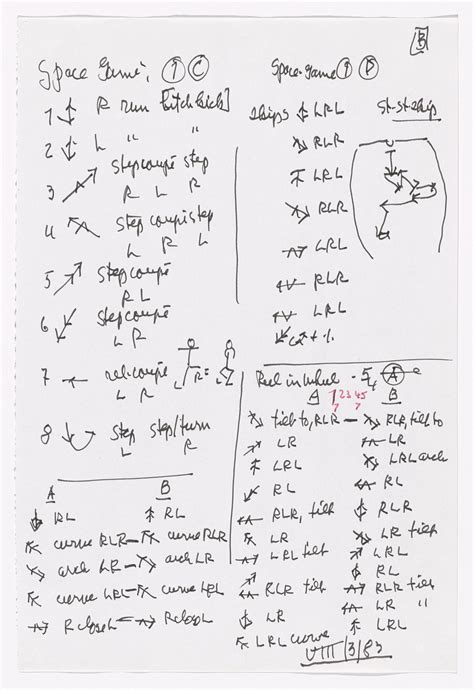 B
Space Game, ↑ C
1 ↕ R run [hitch kick]
2 ↕ L " "
3 ↗ step coupé step
R L R
4 ↖ step coupé step
L R L
5 ↗ step coupé
R L
6 ↙ step coupé
L R
7 ← rel. coupé R = L
L R
8 step step/turn
L R
A B
RL ↑ RL
↖ curve RLR — ↘ curve RLR
↘ arch LR — ↘ arch LR
↖ curve LRL — ↖ curve LRL
→ R close L — → R close L
Space Game ↑ D
skips ↕ LRL st-st skip
↘ RLR
↑ LRL
↘ RLR
→ LRL
← RLR
← LRL
↙
Reel in wheel - 5/4 A
A 1 2 3 4 5 B
7 7
↘ tilt to, RLR — ↘ RLR, tilt to
↗ LR ← LR
↑ LRL ↘ LRL arch
↙ RL ← RL
← RLR, tilt RLR
↖ LR ↘ LR tilt
→ LRL tilt ↗ LRL
RL
↗ RLR tilt → RLR tilt
LR ↖ LR "
↖ LRL curve LRL
VIII/3/83